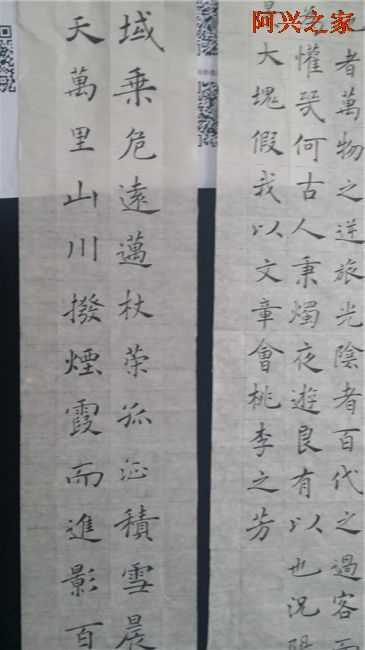 阿兴之家
者萬物之逆旅光陰者百代之過客而
懽幾何古人秉燭夜遊良有以也況陽
大塊假我以文章會桃李之芳
域乗危遠邁杖策孤征積雪晨
天萬里山川撥煙霞而進影百